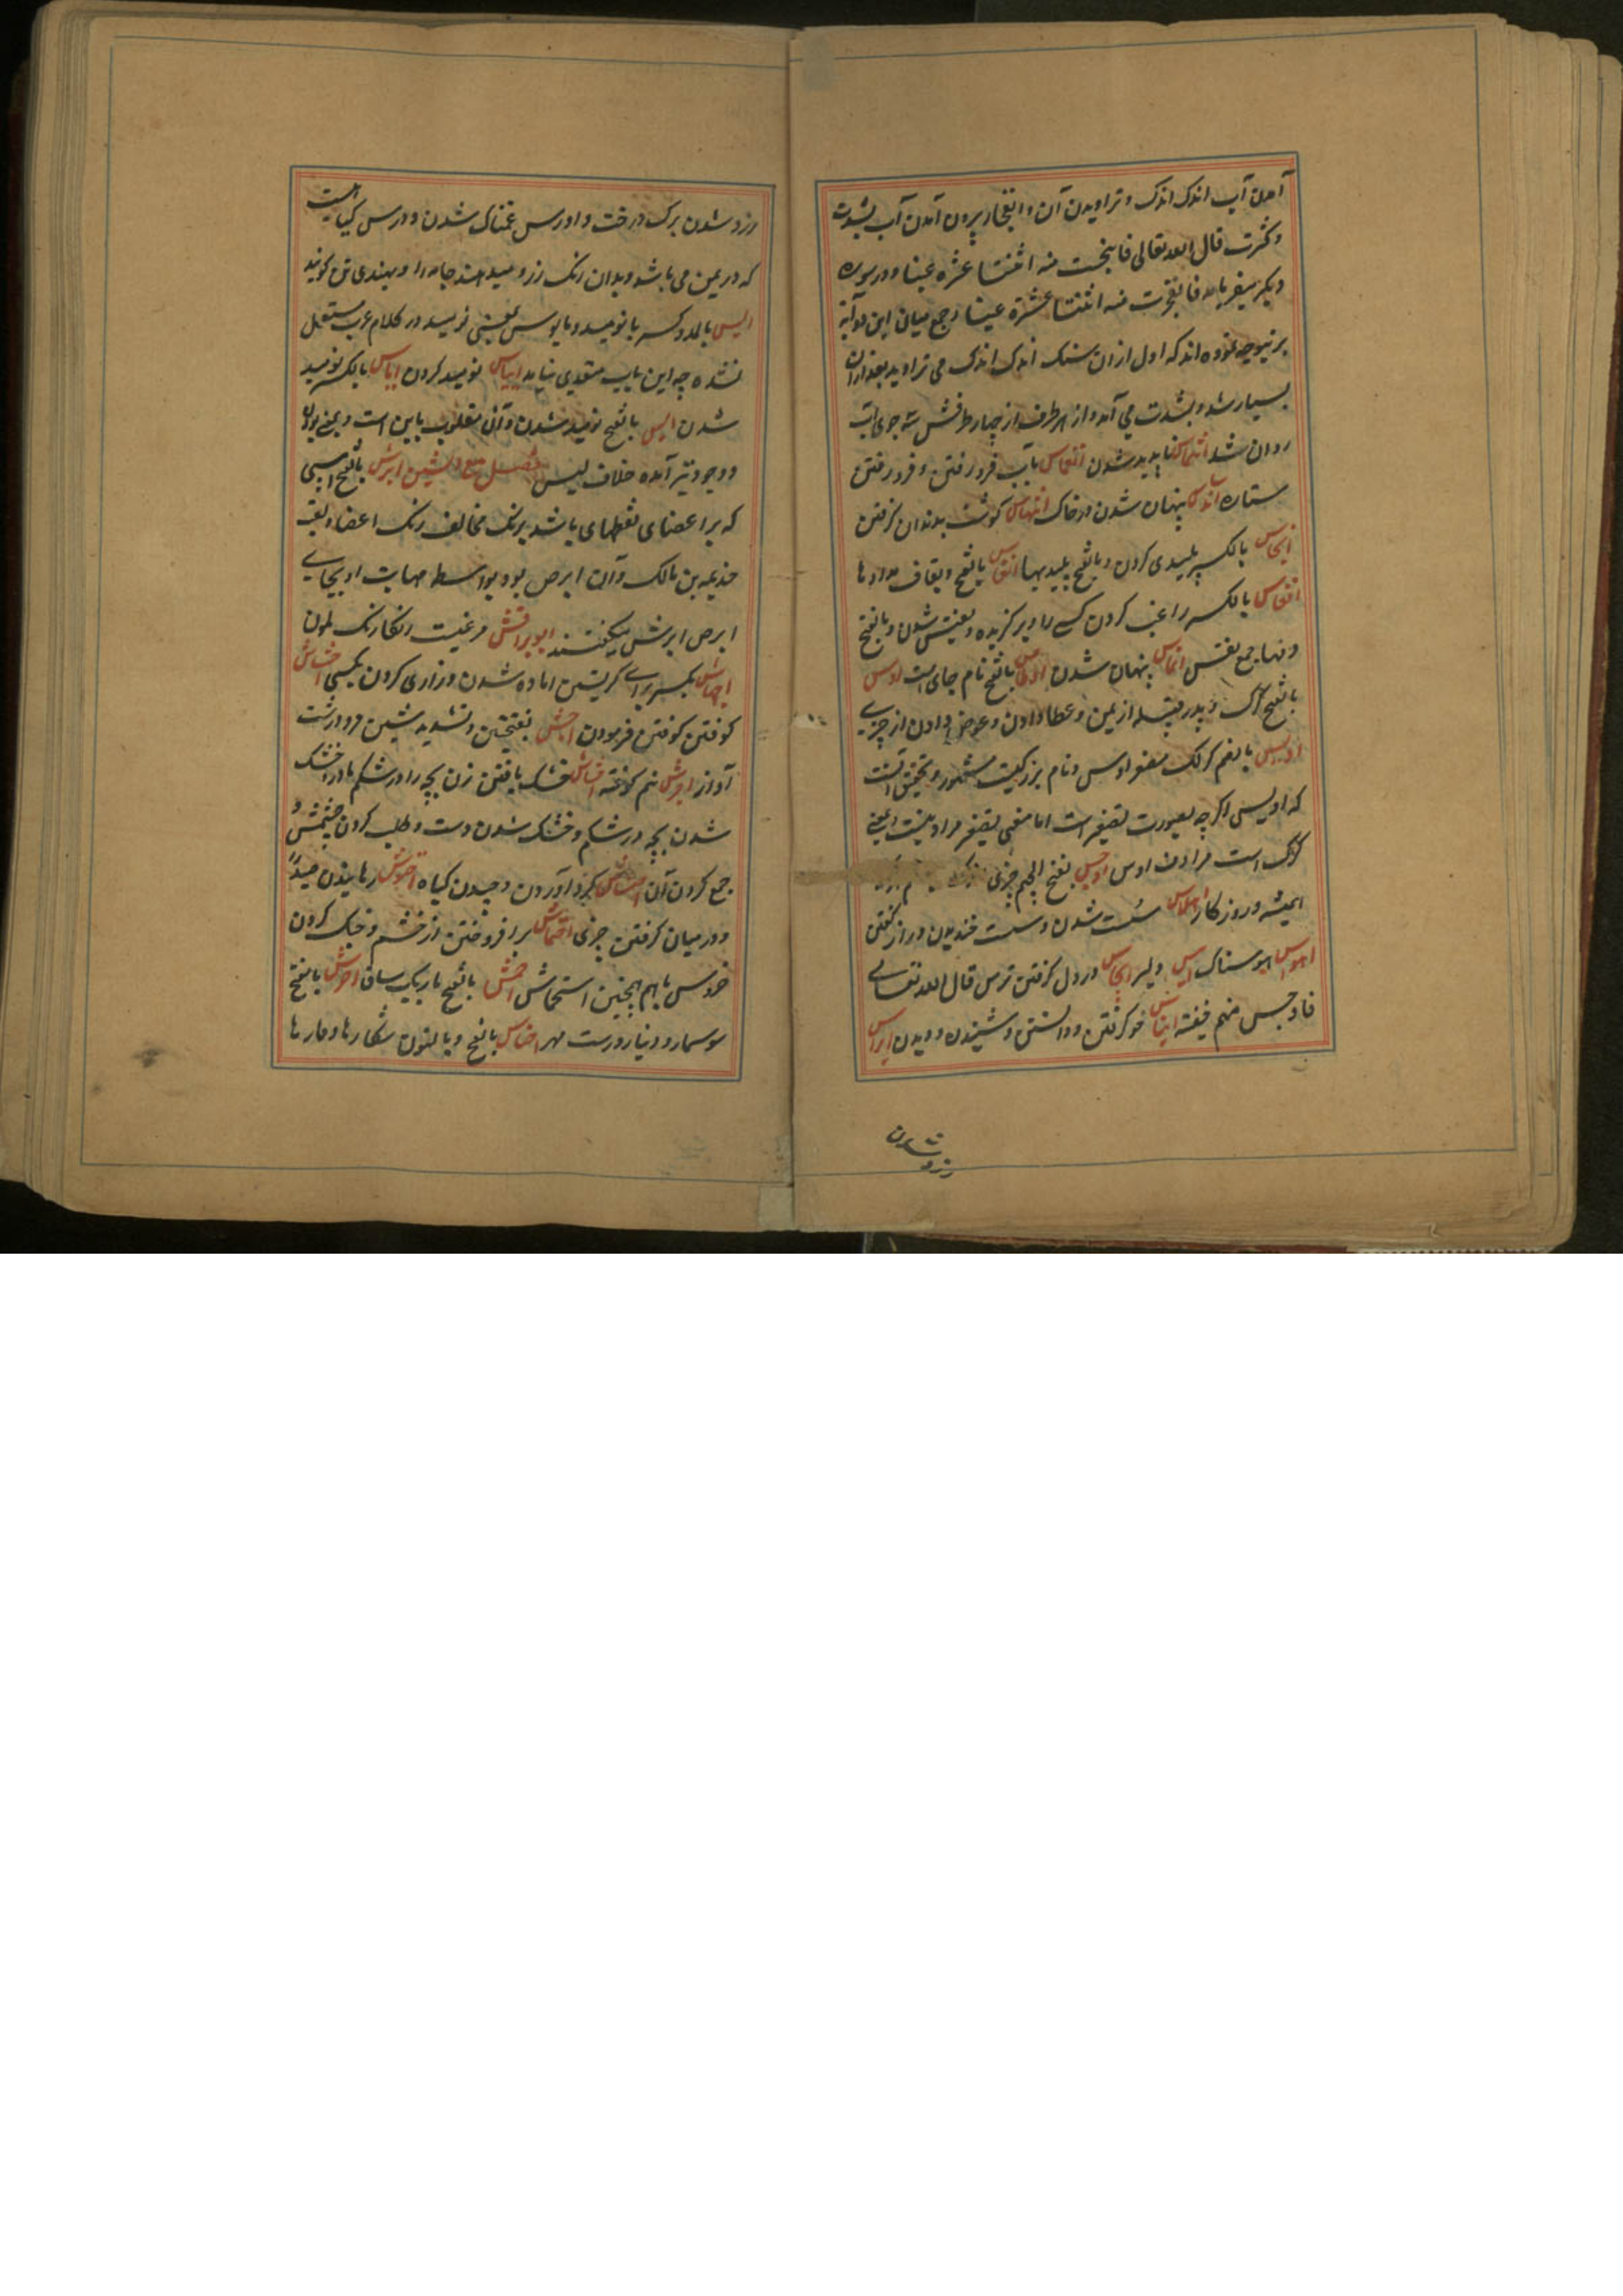 آمدن آب اندک اندک و تراویدن آن و انفجار بیرون آمدن آب بشدت
و کثرت قال الله تعالی فانبجست منه اثنتا عشرة عینا و در سوره
دیگر میفرماید فانفجرت منه اثنتا عشرة عینا و جمع میان این دو آیه
برینوجه نموده اند که اول ازان سنک اندک اندک می تراوید بعد ازان
بسیار شد و بشدت می آمد و از هر طرف از چهار طرفش سه جوی آب
روان شد انطماس ناپدید شدن انغماس بآب فرو رفتن و فرو رفتن
ستاره اندساس پنهان شدن در خاک انتهاس کوشت بدندان کرفتن
انجاس بالکسر پلیدی کردن و بالفتح پلیدیها انقاس بالفتح و بقاف مدادها
انفاس بالکسر راغب کردن کسی را و برکزیده و نفیس شدن و بالفتح
دمها جمع نفس انماس پنهان شدن بالفتح نام جای است اوس
بالفتح کرک و پدر قبیله از یمن و عطا دادن و عوض دادن از چیزی
اویس بالضم کرک مصغر اوس و نام بزرکیست مشهور و تحقیق آنست
که اویس اکرچه بصورت تصغیر است اما معنی تصغیر مراد نیست یعنی
کرک است مرادف اوس اوجس بفتح الجیم چیزی
همیشه و روزکار اهلاس سست شدن و سست خندیدن و راز کفتن
اهوس هوسناک الیس دلیر ایجاس در دل کرفتن ترس قال الله تعالی
فاوجس منهم خیفة ایناس خو کرفتن و دانستن و شنیدن و دیدن ایراس
زرد شدن
زرد شدن برک درخت و اورس غمناک شدن و ورس کیاهیست
که در یمن می باشد و بدان رنک زرد میدهند جامه را و بهندی تن کویند
ایس بالمد و کسر یا نومید و مایوس بمعنی نومید در کلام عرب مستعمل
نشده چه این باب متعدی نیامده ایاس نومید کردن ایاس بالکسر نومید
شدن ایس بالفتح نومید شدن و آن مقلوب یاس است و بمعنی بودن
و وجود نیز آمده خلاف لیس فصل مع الشین ابرش بالفتح اسپی
که بر اعضای نقطهای باشد برنک مخالف رنک اعضا و لقب
جذیمه بن مالک و آن ابرص بود بواسطه مهابت او بجای
ابرص ابرش میکفتند ابو براقش مرغیست رنکارنک ملون
اجهاش بکسر برای کریستن اماده شدن و زاری کردن بکسی اجشاش
کوفتن کوفتن فرمودن اجش بفتحتین و تشدید شین مرد درشت
آواز احرش احشاش خشک یافتن زن بچه را در شکم مادر و خشک
شدن بچه در شکم و خشک شدن دست و طلب کردن حشیش و
جمع کردن آن احتشاش کرد آوردن و چیدن کیاه احتواش رمانیدن صید را
و در میان کرفتن چیزی احتماش بر افروختن از خشم و جنک کردن
خروس باهم همچنین استحماش احمش بالفتح باریک ساق احرش بالفتح
سوسمار و دینار درست مهر احناش بالفتح و بالنون شکارها و مارها